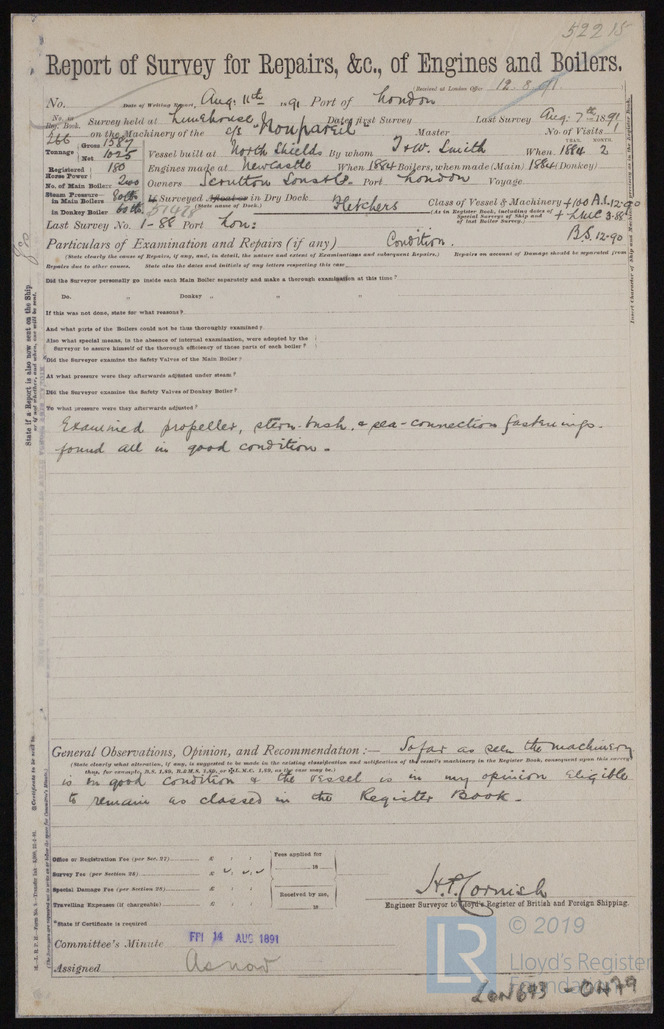 52215
Report of Survey for Repairs, &c., of Engines and Boilers.
(Received at London Office 12.8.91.)
No. Date of Writing Report, Aug: 11th 1891 Port of London
No. in Reg. Book. Survey held at Limehouse Date, first Survey Last Survey Aug: 7th 1891
266 on the Machinery of the "Nonpareil" Master No. of Visits 1
Tonnage Gross 1587 Net 1025
Vessel built at North Shields By whom T & W. Smith When 1884 YEAR. MONTH. 2
Registered Horse Power 180 Engines made at Newcastle When 1884 Boilers, when made (Main) 1884 (Donkey)
No. of Main Boilers 2 Owners Scrutton Sons & Co. Port London Voyage
Steam Pressure in Main Boilers 80 lbs If Surveyed Afloat or in Dry Dock Fletchers Class of Vessel & Machinery +100 A.1. 12-90
in Donkey Boiler 60 lbs. (State name of Dock.) (As in Register Book, including dates of Special Surveys of Ship and of last Boiler Survey.) + LMC 3.88
51478
Last Survey No. 1-88 Port Lon: B.S. 12-90
Particulars of Examination and Repairs (if any) Condition.
(State clearly the cause of Repairs, if any, and, in detail, the nature and extent of Examinations and subsequent Repairs.) Repairs on account of Damage should be separated from
Repairs due to other causes. State also the dates and initials of any letters respecting this case
Did the Surveyor personally go inside each Main Boiler separately and make a thorough examination at this time?
Do. „ Donkey „ „ „
If this was not done, state for what reasons?
And what parts of the Boilers could not be thus thoroughly examined?
Also what special means, in the absence of internal examination, were adopted by the
Surveyor to assure himself of the thorough efficiency of those parts of each boiler?
Did the Surveyor examine the Safety Valves of the Main Boiler?
At what pressure were they afterwards adjusted under steam?
Did the Surveyor examine the Safety Valves of Donkey Boiler?
To what pressure were they afterwards adjusted?
Examined propeller, stern-bush, & sea-connection fastenings.
found all in good condition.
General Observations, Opinion, and Recommendation :— So far as seen the machinery
(State clearly what alteration, if any, is suggested to be made in the existing classification and notification of the vessel's machinery in the Register Book, consequent upon this survey
thus, for example, B.S. 1,89, B.&M.S. 1,89, or L.M.C. 1,89, as the case may be.)
is in good condition & the vessel is in my opinion eligible
to remain as classed in the Register Book.
Office or Registration Fee (per Sec. 27) £ Fees applied for
Survey Fee (per Section 28) £ 18
Special Damage Fee (per Section 28) £ Received by me,
Travelling Expenses (if chargeable) £ 18
H.P. Cornish
Engineer Surveyor to Lloyd's Register of British and Foreign Shipping.
*State if Certificate is required
Committee's Minute FRI 14 AUG 1891
Assigned As now
State if a Report is also now sent on the Ship
LR © 2019
Lloyd's Register
Foundation
LON693-0479